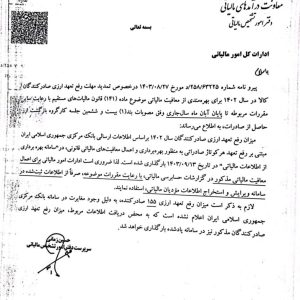 معاونت درآمدهای مالیاتی
دفتر امور تشخیص مالیاتی
بسمه تعالی
ادارات کل امور مالیاتی
پیرو نامه شماره ۲۵۸/۶۳۲۲۵/د مورخ ۱۴۰۳/۰۸/۲۷ درخصوص تمدید مهلت رفع تعهد ارزی صادرکنندگان
کالا در سال ۱۴۰۲ برای بهره‌مندی از معافیت مالیاتی موضوع ماده (۱۴۱) قانون مالیات‌های مستقیم با رعایت سایر
مقررات مربوطه تا پایان آبان ماه سال‌جاری وفق مصوبات بند(۱) بیست و ششمین جلسه کارگروه بازگشت ارز
حاصل از صادرات، به اطلاع می‌رساند:
میزان رفع تعهد ارزی صادرکنندگان سال ۱۴۰۲ براساس اطلاعات ارسالی بانک مرکزی جمهوری اسلامی ایران
مبتنی بر رفع تعهد هر کوتاژ صادراتی به‌منظور بهره‌برداری و اعمال معافیت‌های مالیاتی قانونی، در «سامانه بهره برداری
از اطلاعات مالیاتی» در تاریخ ۱۴۰۳/۰۹/۱۳ بارگذاری شده است. لذا ضروری است ادارات امور مالیاتی برای اعمال
معافیت مالیاتی مذکور در گزارشات حسابرسی مالیاتی، با رعایت مقررات موضوعه، صرفاً از اطلاعات ثبت‌شده در
سامانه ویرایش و استخراج اطلاعات مؤدیان مالیاتی، استفاده نمایند.
لازم به ذکر است میزان رفع تعهد ارزی ۱۵۵ صادرکننده، به دلیل وجود مغایرت در سامانه بانک مرکزی
جمهوری اسلامی ایران اعلام نشده است که به محض دریافت اطلاعات مربوط، میزان رفع تعهد ارزی
صادرکنندگان مذکور نیز در سامانه یادشده بارگذاری خواهد شد.
سرپرست دفتر امور تشخیص مالیاتی